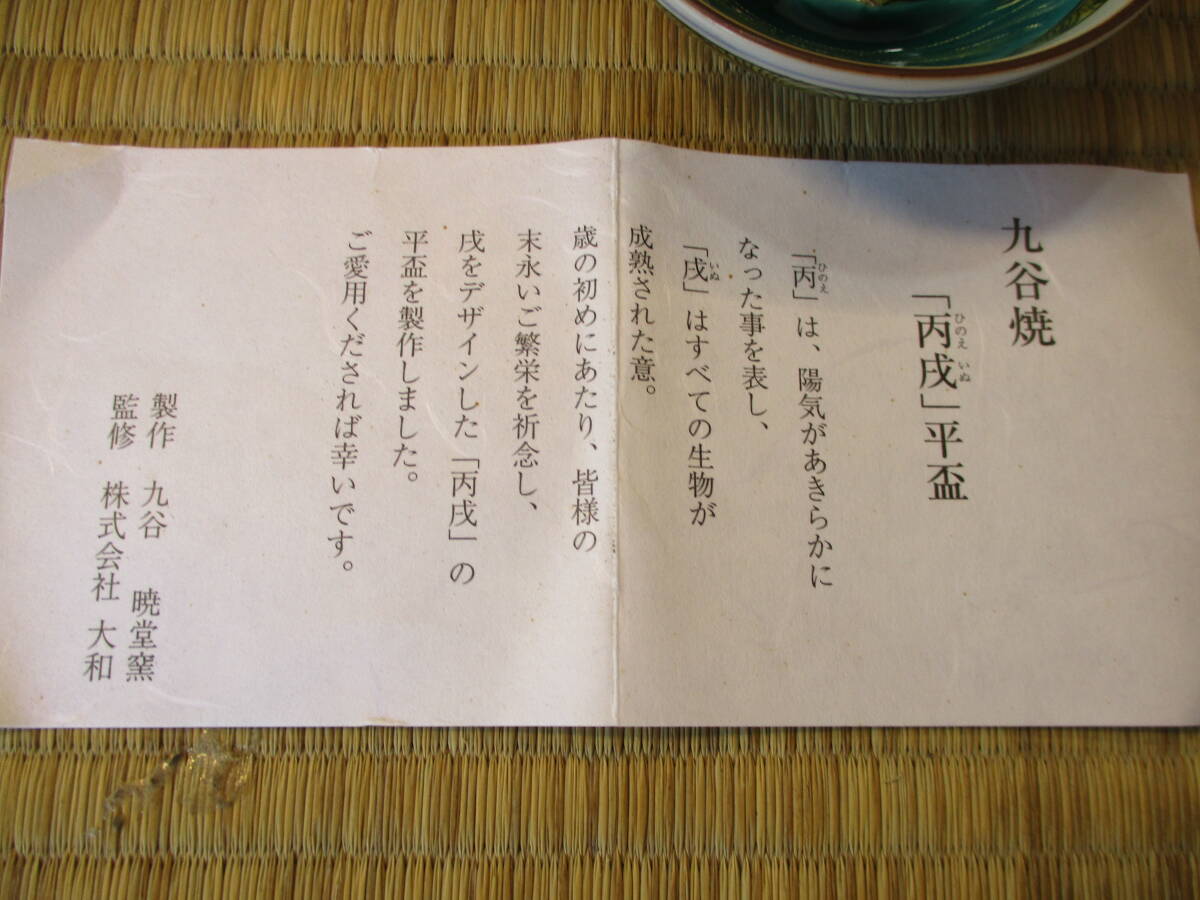 九谷焼
「丙戌」平盃
ひのえ いぬ
「丙」は、陽気があきらかに
ひのえ
なった事を表し、
「戌」はすべての生物が
いぬ
成熟された意。
歳の初めにあたり、皆様の
末永いご繁栄を祈念し、
戌をデザインした「丙戌」の
平盃を製作しました。
ご愛用くだされば幸いです。
製作 九谷 暁堂窯
監修 株式会社 大和